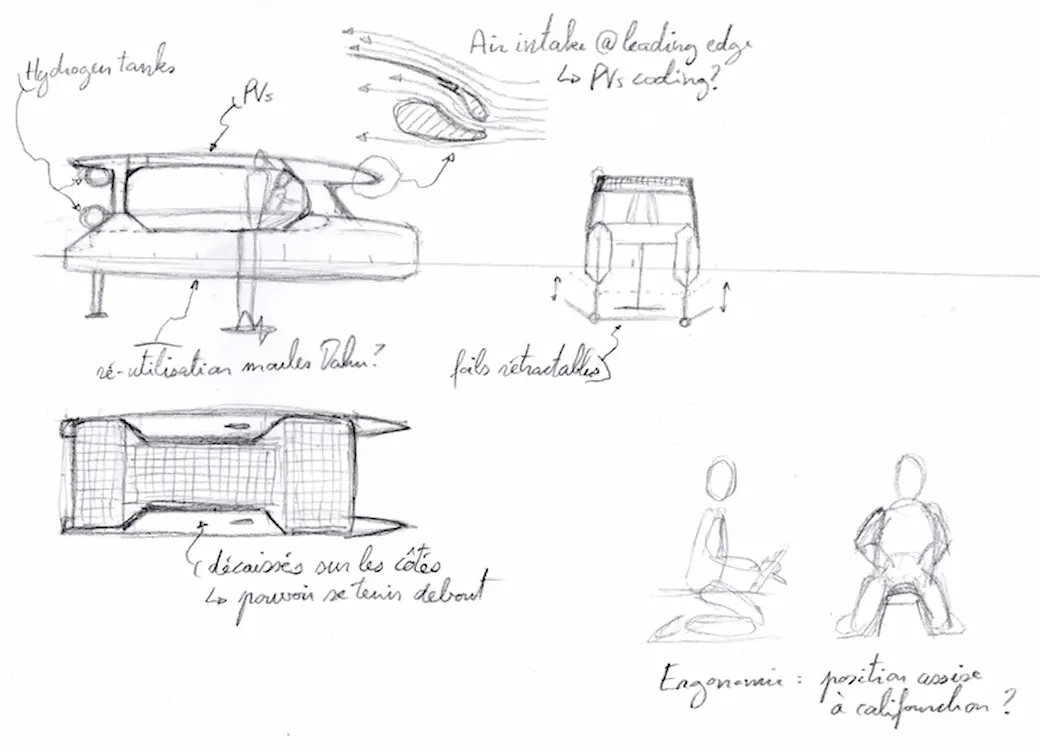 Air intake @ leading edge
↳ PVs cooling?
Hydrogen tanks
PVs
ré-utilisation moules Dahu?
foils rétractables
décaissés sur les côtés
↳ pouvoir se tenir debout
Ergonomie : position assise
à califourchon ?